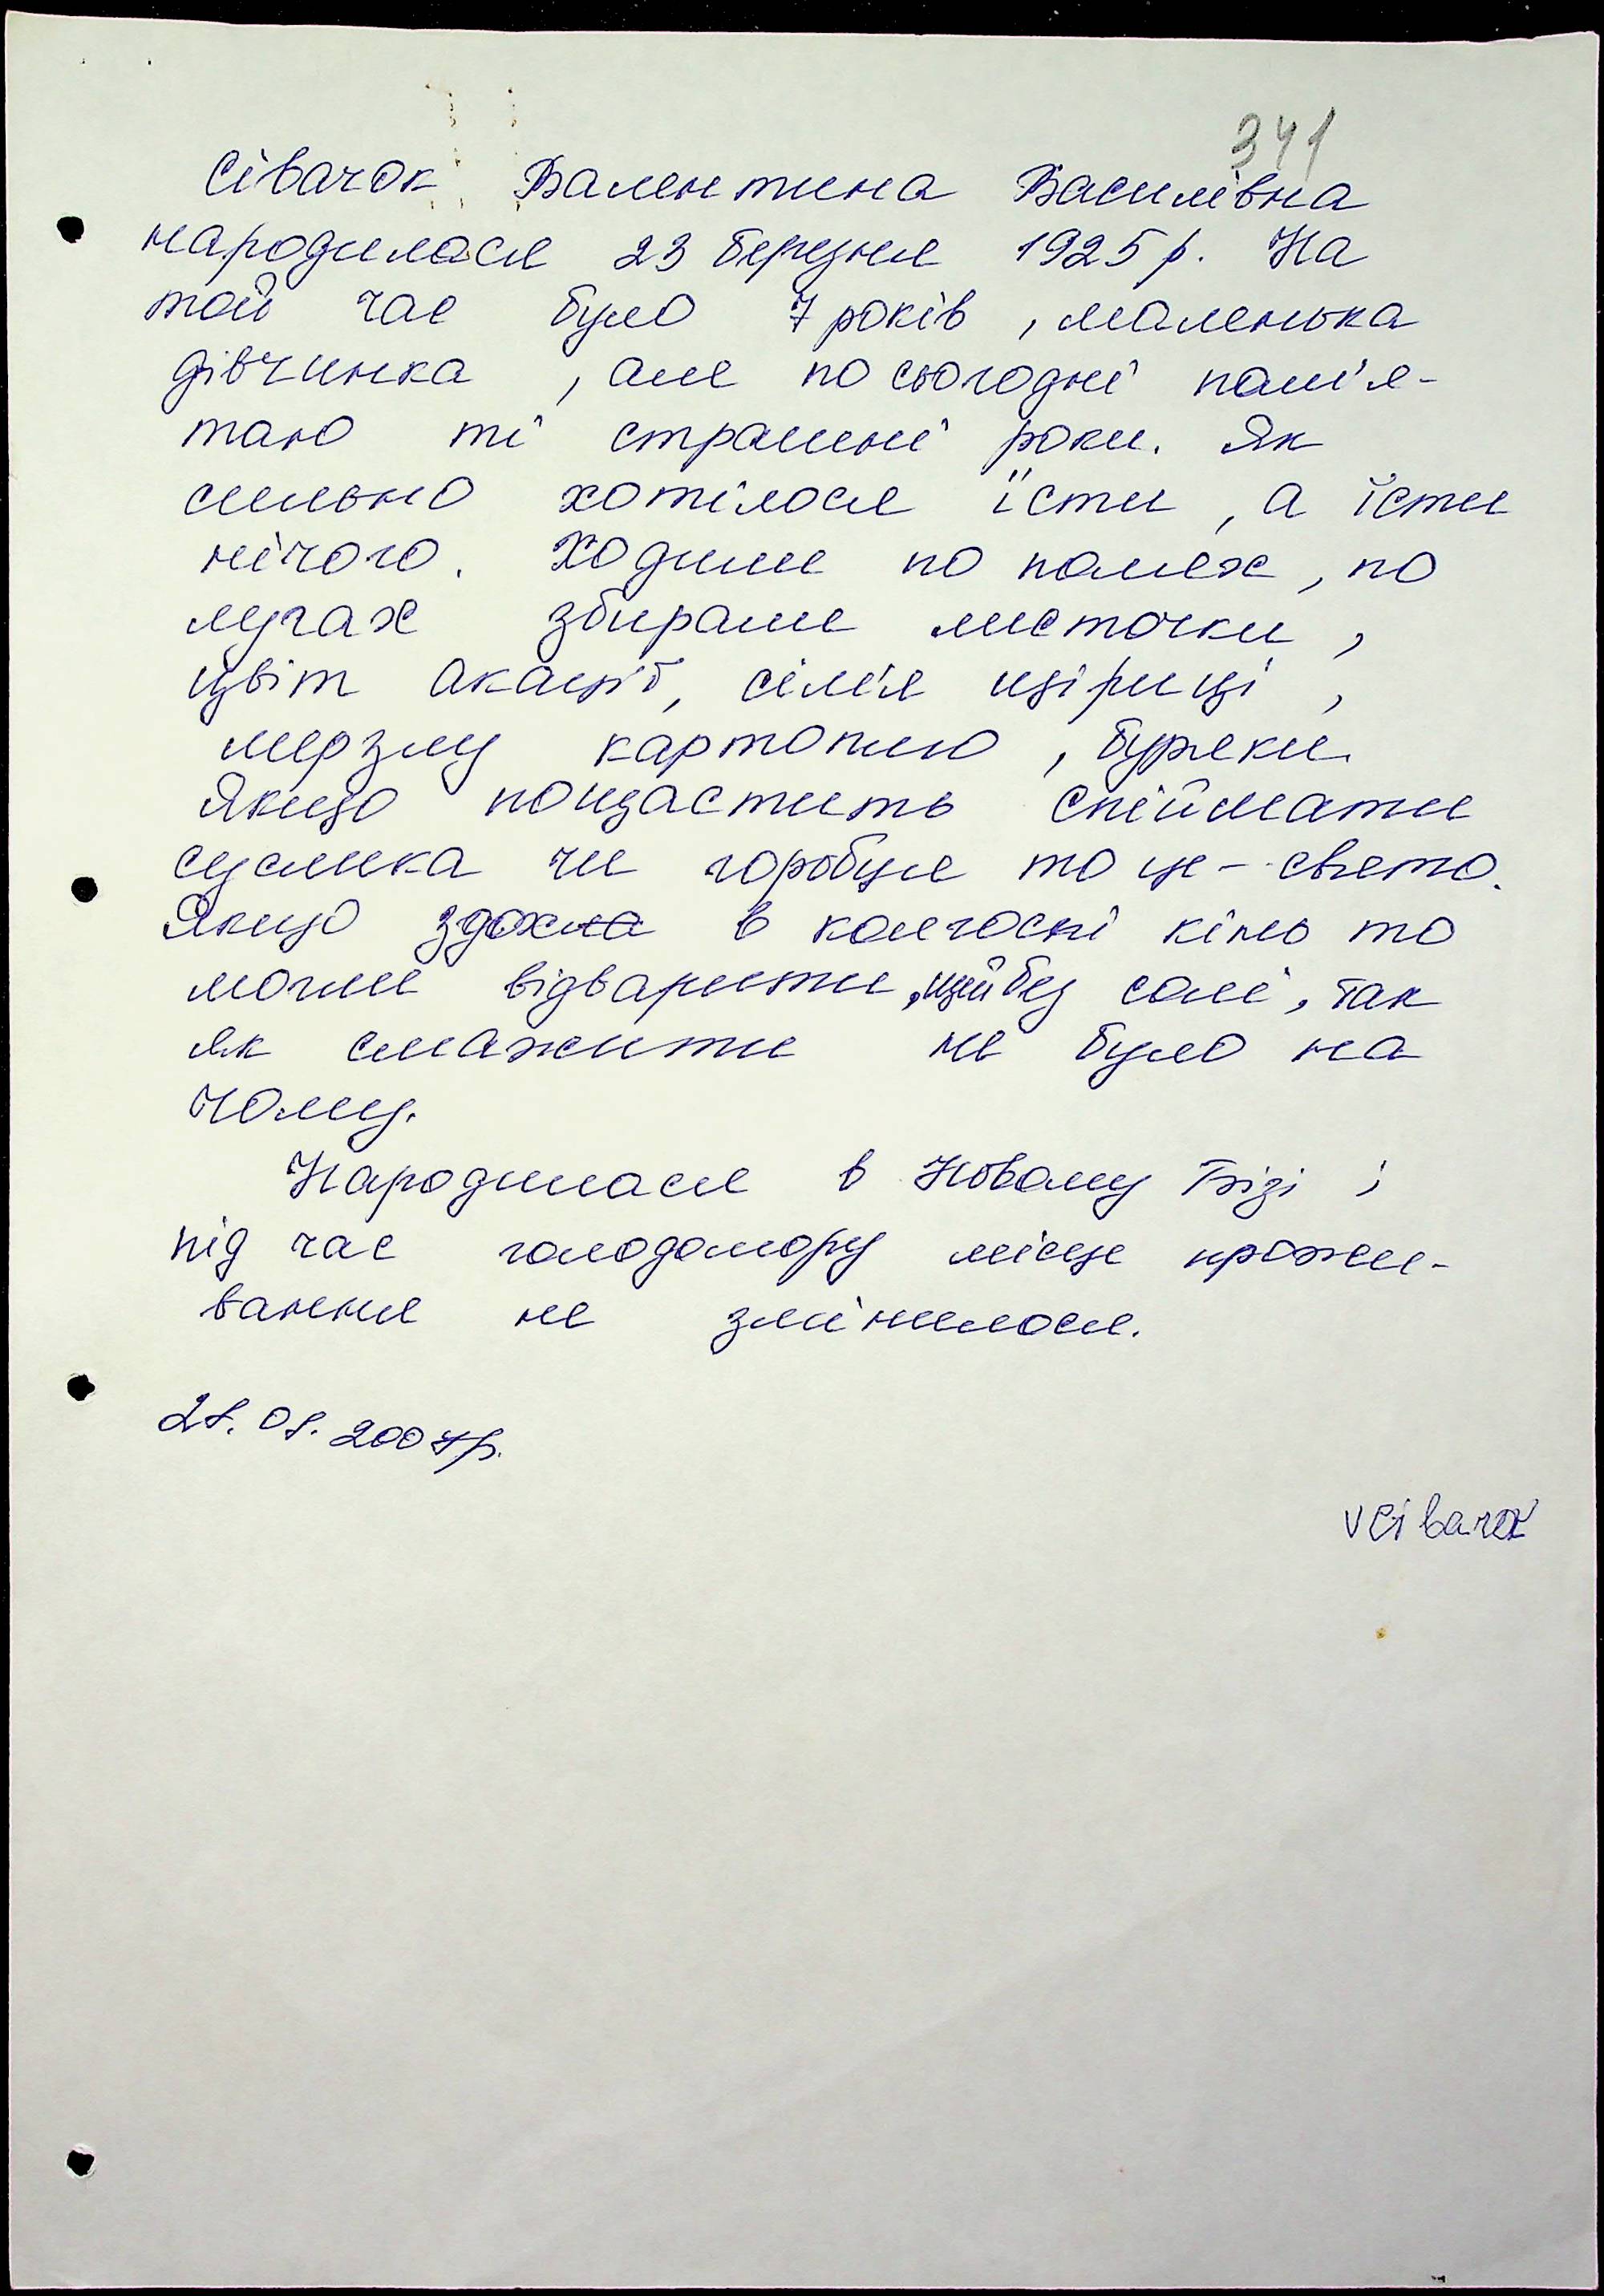 341
Сівачок Валентина Василівна
народилася 23 березня 1925 р. На
той час було 7 років, маленька
дівчинка, але по сьогодні пам'я-
таю ті страшні роки. Як
сильно хотілося їсти, а їсти
нічого. Ходили по полях, по
лугах збирали листочки,
цвіт акації, сім'я щіриці,
мерзлу картоплю, буряки.
Якщо пощастить спіймати
суслика чи горобця то це - свято.
Якщо здохла в колгоспі кінь то
могли відварити, й без солі, так
як смажити не було на
чому.
Народилася в Новому Бізі і
під час голодомору місце прожи-
вання не змінилося.
28.08.2007р.
VСівачок